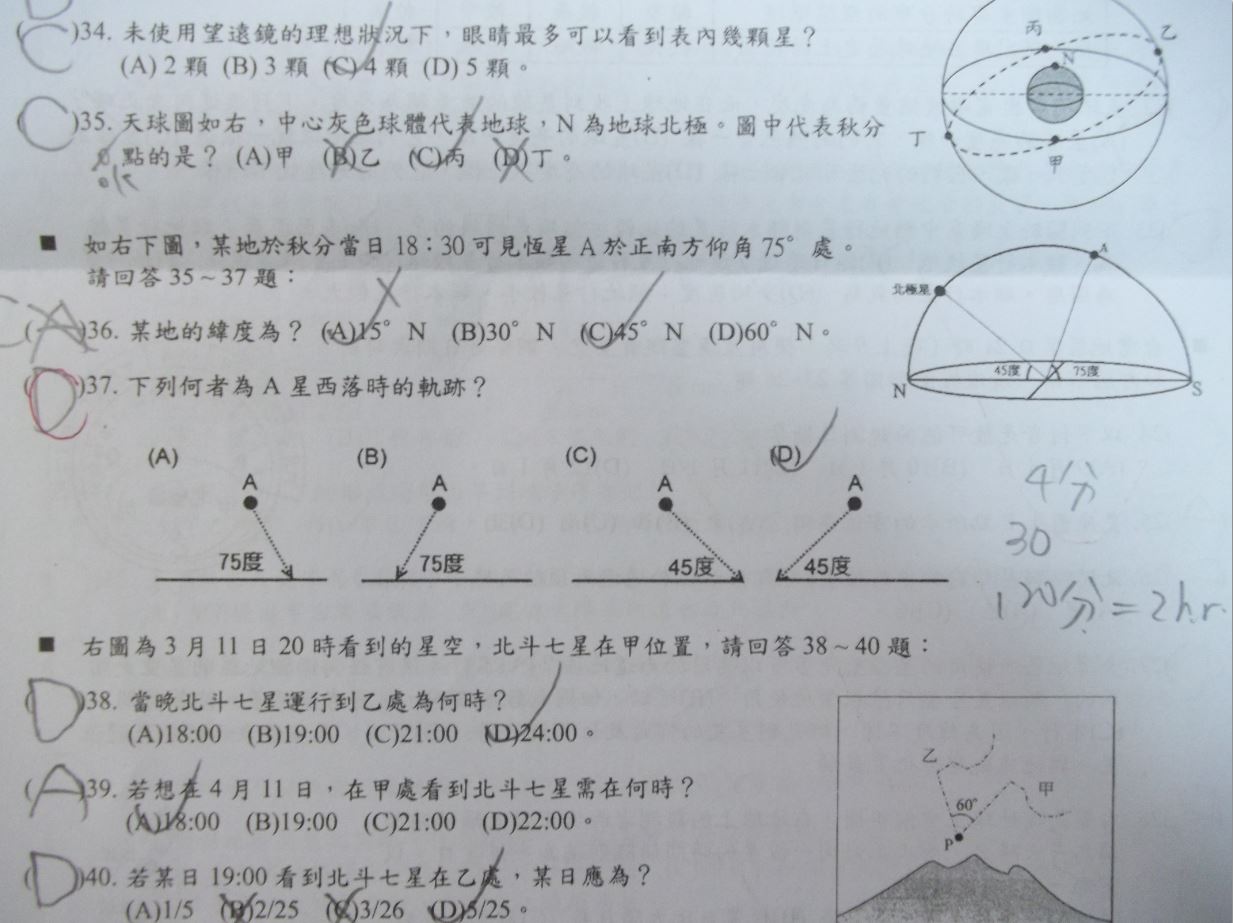 (C)34. 未使用望遠鏡的理想狀況下，眼睛最多可以看到表內幾顆星？
(A) 2 顆 (B) 3 顆 (C) 4 顆 (D) 5 顆。
(C)35. 天球圖如右，中心灰色球體代表地球，N 為地球北極。圖中代表秋分
點的是？ (A)甲 (B)乙 (C)丙 (D)丁。
ok
丙
乙
N
丁
甲
■ 如右下圖，某地於秋分當日 18：30 可見恆星 A 於正南方仰角 75° 處。
請回答 35～37 題：
(A)36. 某地的緯度為？ (A)15° N (B)30° N (C)45° N (D)60° N。
(D)37. 下列何者為 A 星西落時的軌跡？
A
北極星
45度 75度
N S
(A) (B) (C) (D)
A A A A
75度 75度 45度 45度
4分
30
120分=2hr.
■ 右圖為 3 月 11 日 20 時看到的星空，北斗七星在甲位置，請回答 38～40 題：
(D)38. 當晚北斗七星運行到乙處為何時？
(A)18:00 (B)19:00 (C)21:00 (D)24:00。
(A)39. 若想在 4 月 11 日，在甲處看到北斗七星需在何時？
(A)18:00 (B)19:00 (C)21:00 (D)22:00。
(D)40. 若某日 19:00 看到北斗七星在乙處，某日應為？
(A)1/5 (B)2/25 (C)3/26 (D)5/25。
乙
甲
60°
P